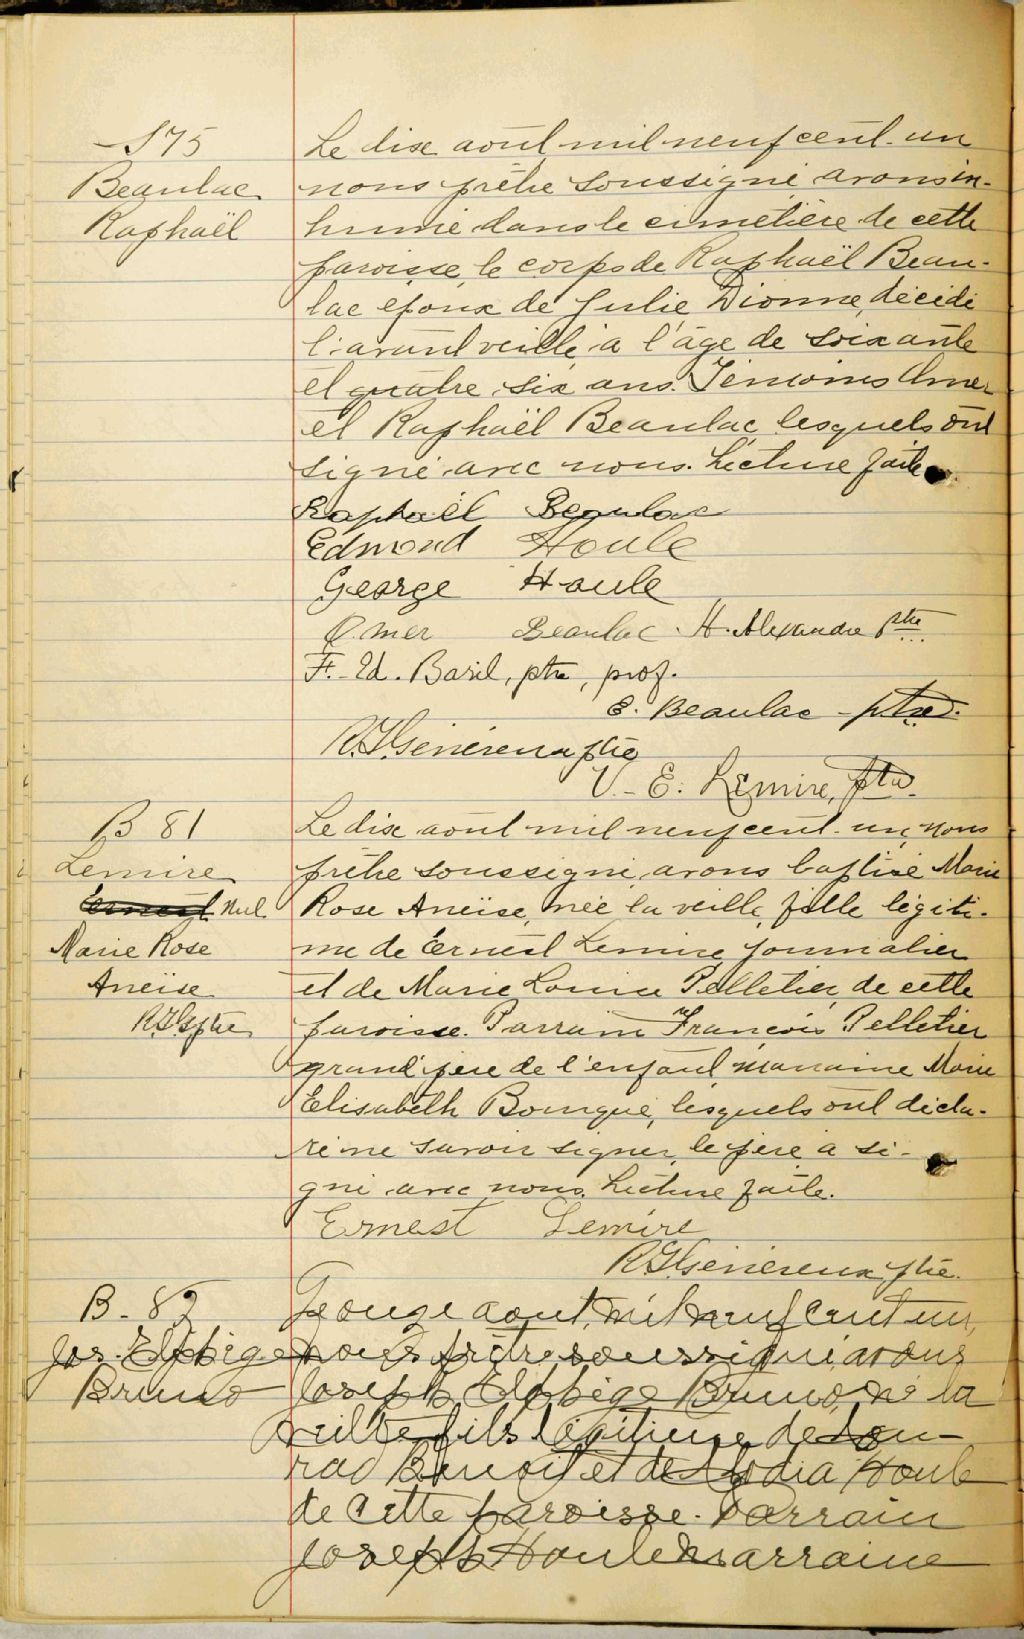 S 75
Beaulac
Raphaël
Le dix août mil neuf cent un
nous prêtre soussigné avons in-
humé dans le cimetière de cette
paroisse, le corps de Raphaël Beau-
lac époux de Julie Dionne, décédé
l'avant veille, à l'âge de soixante
et quatre six ans. Témoins Omer
et Raphaël Beaulac lesquels ont
signé avec nous. Lecture faite.
Raphaël Beaulac
Edmond Houle
George Houle
Omer Beaulac H. Alexandre ptre
F.-Ed. Baril, ptre, prof.
E. Beaulac ptre.
R.G. Généreux ptre
V. E. Lemire, ptre.
B 81
Lemire
Ernest Nul
Marie Rose
Aneïse
R.G. G. ptre
Le dix août mil neuf cent un, nous
prêtre soussigné, avons baptisé Marie
Rose Aneïse, née la veille, fille légiti-
me de Ernest Lemire journalier
et de Marie Louise Pelletier, de cette
paroisse. Parrain François Pelletier
grand'père de l'enfant marraine Marie
Elisabeth Bourque, lesquels ont décla-
ré ne savoir signer, le père a si-
gné avec nous. Lecture faite.
Ernest Lemire
R.G. Généreux ptre.
B. 82
Jos. Elphège
Bruno
Le onze aout, mil neuf cent un,
nous prêtre soussigné, avons
Joseph Elphège Bruno, né la
veille fils légitime de
Benoit et de Houle
de cette paroisse. Parrain
Joseph Houle Marraine